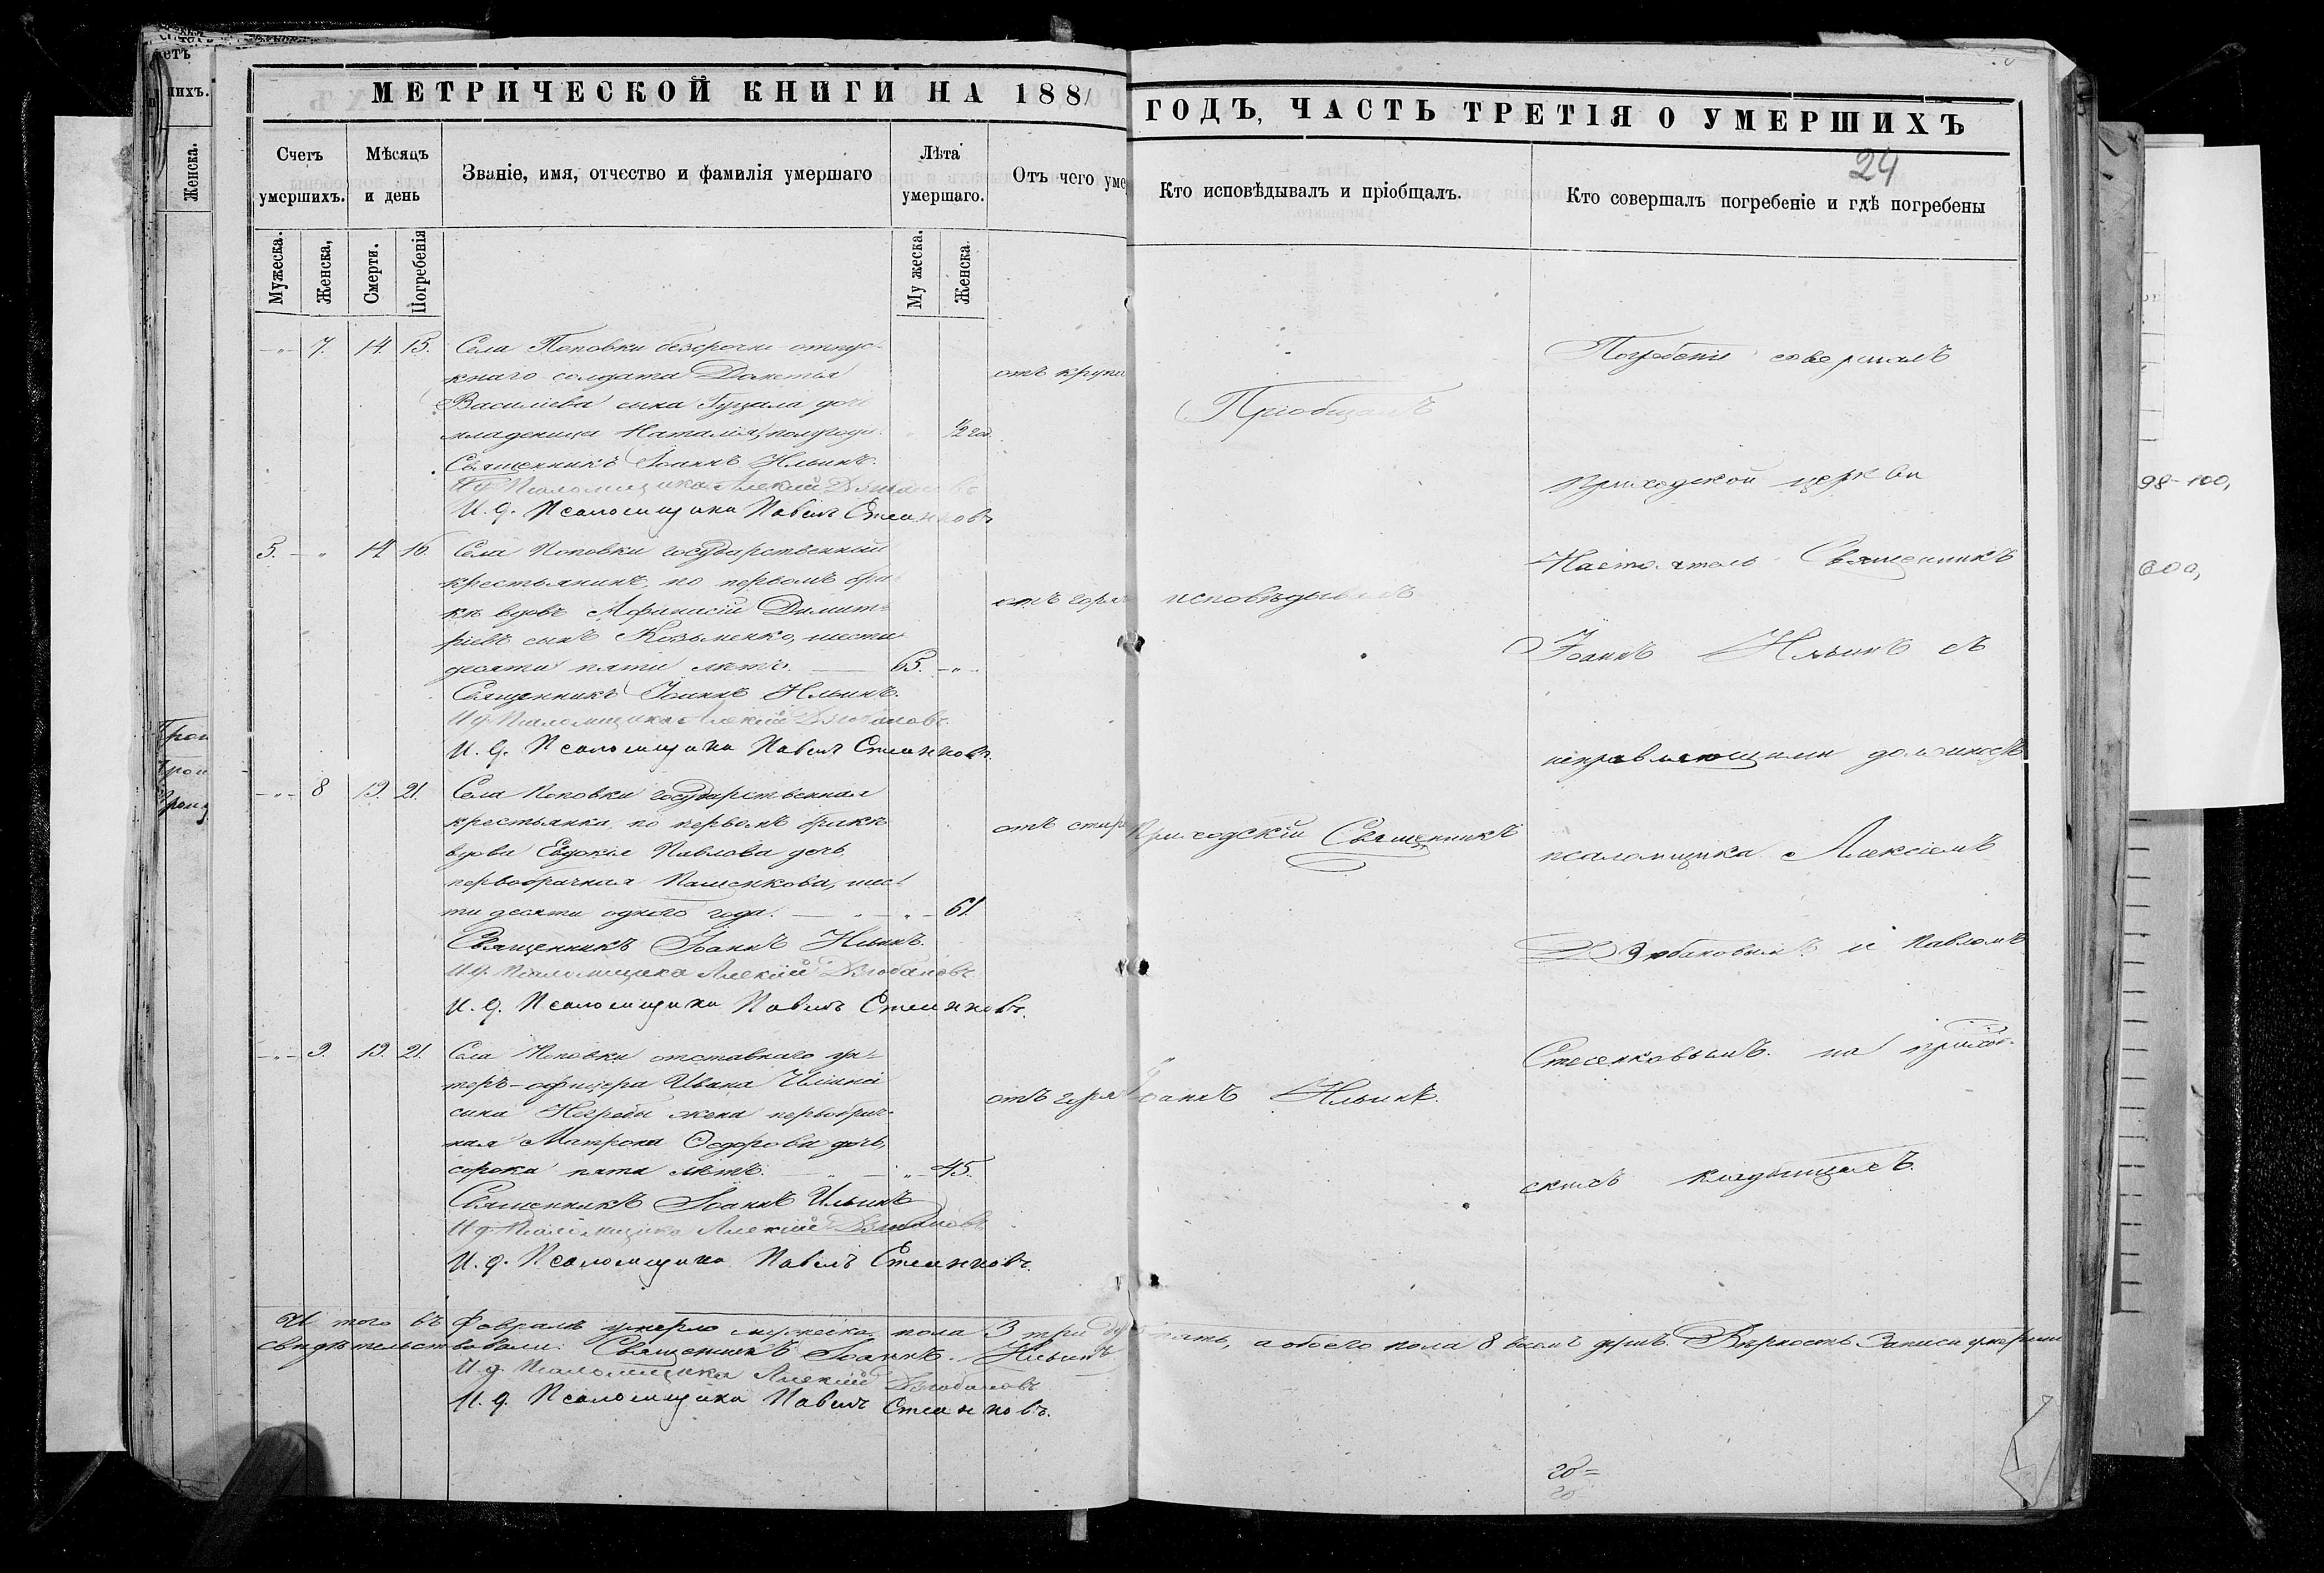 МЕТРИЧЕСКОЙ КНИГИ НА 1881
ГОДЪ, ЧАСТЬ ТРЕТІЯ О УМЕРШИХЪ
24
Счетъ умершихъ.
Мѣсяцъ и день
Званіе, имя, отчество и фамилія умершаго
Лѣта умершаго.
Отъ чего уме
Кто исповѣдывалъ и пріобщалъ.
Кто совершалъ погребеніе и гдѣ погребены
Мужеска.
Женска,
Смерти.
Погребенія
Мужеска.
Женска.
7. 14. 15. Села Поповки безсрочно отпус-
кнаго солдата
отъ крупа
Васильева сына Гуцала дочь
младеница Наталія, полугода. 1/2 год.
Священникъ Іоаннъ Ильинъ.
И. д. Псаломщика Алексій Дзюбановъ
И. д. Псаломщика Павелъ Стесенковъ
5. 14 16. Села Поповки государственный
крестьянинъ, по первомъ бра-
кѣ вдовъ Афанасій Димит-
отъ горя
ріевъ сынъ Козьменко, шести
десяти пяти лѣтъ. 65.
Священникъ Іоаннъ Ильинъ.
И. д. Псаломщика Алексій Дзюбановъ.
И. д. Псаломщика Павелъ Стесенковъ.
8 19. 21. Села Поповки государственная
крестьянка, по первомъ бракѣ
отъ стар
вдова Евдокія Павлова дочь,
первобрачная шес-
ти десяти одного года. 61.
Священникъ Іоаннъ Ильинъ.
И. д. Псаломщика Алексій Дзюбановъ.
И. д. Псаломщика Павелъ Стесенковъ.
9. 19. 21. Села Поповки отставнаго ун-
теръ-офицера Ивана
отъ горя
сына Негребы жена первобрач-
ная Матрона Ѳеодорова дочь,
сорока пяти лѣтъ. 45.
Священникъ Іоаннъ Ильинъ
И. д. Псаломщика Алексій Дзюбановъ
И. д. Псаломщика Павелъ Стесенковъ.
Пріобщалъ
исповѣдывалъ
Приходскій Священникъ
Іоаннъ Ильинъ.
Погребеніе совершалъ
приходской церкви
Настоятель Священникъ
Іоаннъ Ильинъ съ
исправляющими должность
псаломщика Алексіемъ
Дзюбановымъ и Павломъ
Стесенковымъ на приход-
скихъ кладбищахъ.
И того въ Февралѣ умерло мужеска пола 3 три пять, а обоего пола 8 восемь душъ. Вѣрность записи умерших
свидѣтельствовали: Священникъ Іоаннъ Ильинъ
И. д. Псаломщика Алексій Дзюбановъ
И. д. Псаломщика Павелъ Стесенковъ.
етъ
нихъ.
Женска.
98-100,
600,